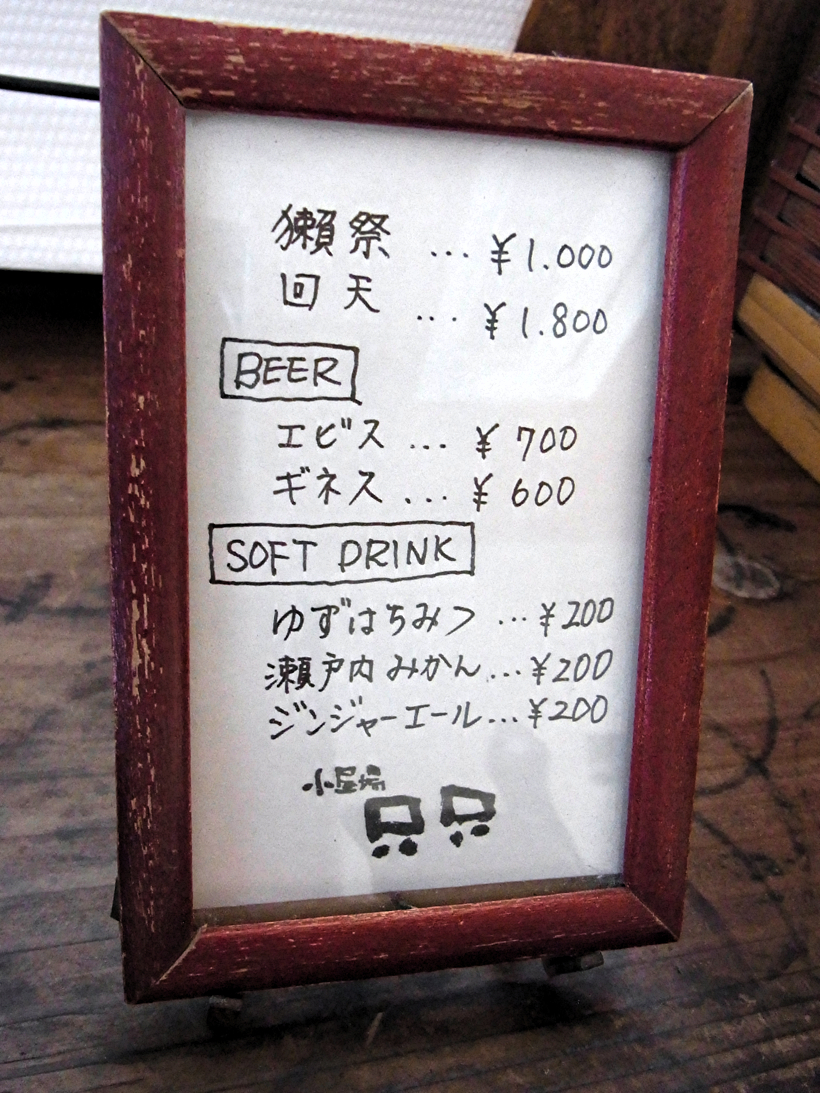 獺祭 … ¥1.000
回天 … ¥1.800
BEER
エビス … ¥700
ギネス … ¥600
SOFT DRINK
ゆずはちみつ …¥200
瀬戸内みかん…¥200
ジンジャーエール…¥200
小屋場